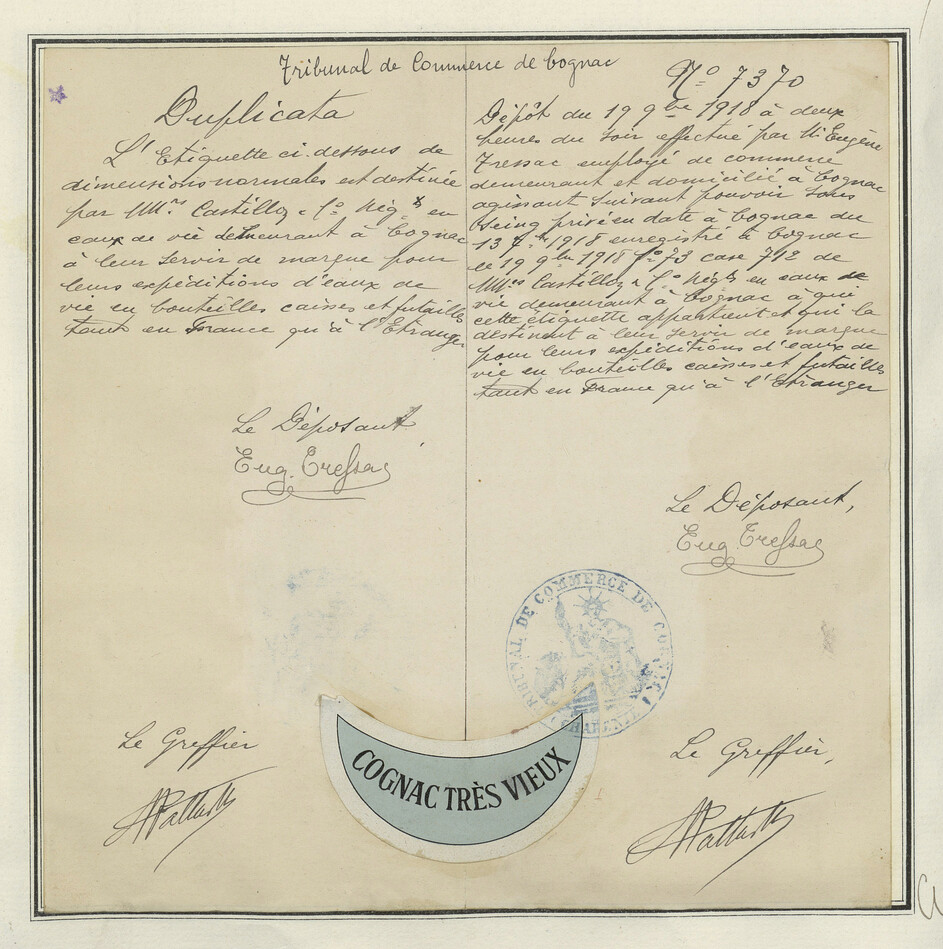 Tribunal de Commerce de Cognac
Duplicata
L'Etiquette ci-dessous de
dimensions normales est destinée
par MM.rs Castillon & C.o Nég.ts en
eaux de vie demeurant à Cognac
à leur servir de marque pour
leurs expéditions d'eaux de
vie en bouteilles caisses et futailles
tant en France qu'à l'Etranger
Le Déposant
Eug. Tressac
Le Greffier
N.o 7370
Dépôt du 19 9bre 1918 à deux
heures du soir effectué par M. Eugène
Tressac employé de commerce
demeurant et domicilié à Cognac
agissant suivant pouvoir sous
seing privé en date à Cognac du
13 1918 enregistré à Cognac
le 19 9bre 1918 f.o 73 case 712 de
MM.rs Castillon & C.o Nég.ts en eaux de
vie demeurant à Cognac à qui
cette étiquette appartient et qui la
destinent à leur servir de marque
pour leurs expéditions d'eaux de
vie en bouteilles caisses et futailles
tant en France qu'à l'Etranger
Le Déposant,
Eug. Tressac
TRIBUNAL DE COMMERCE DE COGNAC
CHARENTE
Le Greffier,
COGNAC TRÈS VIEUX